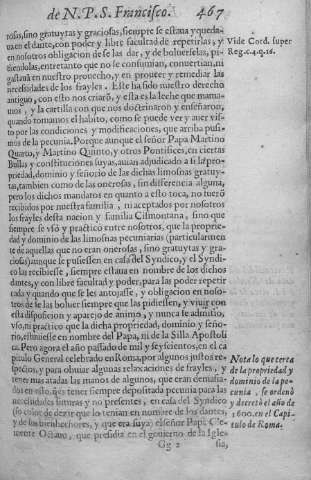 de N. P. S. Francisco. 467
rosas, sino gratuytas y graciosas, siempre se estaua y queda-
ua en el dante, con poder y libre facultad de repetirlas, y
en nosotros obligacion de se las dar, y de boluerselas, pi-
diendolas, entretanto que no se consumian, conuertian, ni
gastauan en nuestro prouecho, y en proueer y remediar las
necessidades de los frayles. Este ha sido nuestro derecho
antiguo, con esto nos criarõ, y esta es la leche que mama-
mos, y la cartilla con que nos doctrinaron y enseñaron,
quando tomamos el habito, como se puede ver y auer vis-
to por las condiciones y modificaciones, que arriba pusi-
mos de la pecunia. Porque aunque el señor Papa Martino
Quarto, y Martino Quinto, y otros Pontifices, en ciertas
Bullas y constituciones suyas, auian adjudicado a si la pro-
priedad, dominio y señorio de las dichas limosnas gratuy-
tas, tambien como de las onerosas, sin differencia alguna,
pero los dichos mandatos en quanto a esto toca, no fuerõ
recibidos por nuestra familia, ni aceptados por nosotros
los frayles desta nacion y familia Cismontana, sino que
siempre se vsó y practicò entre nosotros, que la proprie-
dad y dominio de las limosnas pecuniarias (particularmen
te de aquellas que no eran onerosas, sino gratuytas y gra-
ciosas) aunque se pusiessen en casa del Syndico, y el Syndi-
co las recibiesse, siempre estaua en nombre de los dichos
dantes, y con libre facultad y poder, para las poder repetir
cada y quando que se les antojasse, y obligacion en noso-
tros de se las boluer siempre que las pidiessen, y viuir con
esta disposicion y aparejo de animo, y nunca se admitio,
vsò, ni practicò que la dicha propriedad, dominio y seño-
rio, estuuiesse en nombre del Papa, ni de la Silla Apostoli
ca. Pero agora el año passado de mil y seyscientos, en el ca
pitulo General celebrado en Roma, por algunos justos re-
spectos, y para obuiar algunas relaxaciones de frayles, y
tener mas atadas las manos de algunos, que eran demasia-
dos en esto, q̃ es tener siempre depositada pecunia para las
necessidades futuras y no presentes, en casa del Syndico
(so color de dezir que lo tenian en nombre de los dantes,
y de sus bienhechores, y que era suya) el señor Papa Cle-
mente Octauo, que presidia en el gouierno de la Igle-
Gg 2 sia,
Vide Cord. super
Reg. c. 4. q. 16.
Nota lo que cerca
de la propriedad y
dominio de la pe-
cunia, se ordenò
y decretò el año de
1600. en el Capi-
tulo de Roma.